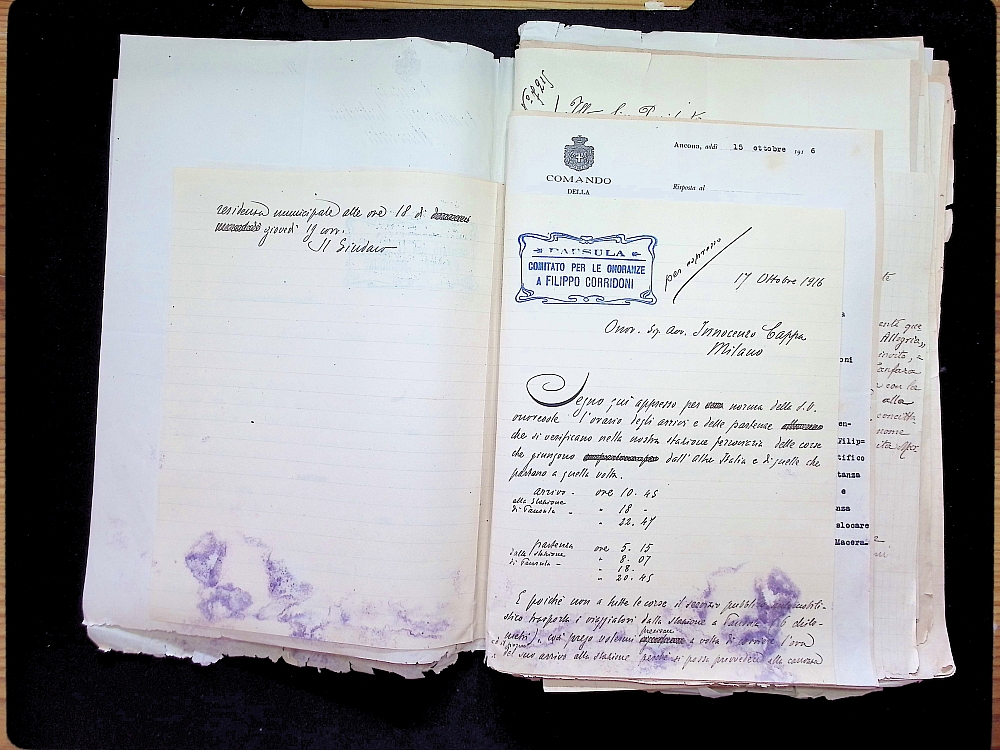 residenza municipale alle ore 18 di
giovedì 19 corr.
Il Sindaco
No. 725
Ancona, addì 15 ottobre 1916
COMANDO
DELLA
Risposta al
PAUSULA
COMITATO PER LE ONORANZE
A FILIPPO CORRIDONI
per espresso
17 Ottobre 1916
Onor. Sig. Avv. Innocenzo Cappa
Milano
Segno quì appresso per norma della S.V.
onorevole l'orario degli arrivi e delle partenze
che si verificano nella nostra stazione ferroviaria delle corse
che giungono dall'Alta Italia e di quelle che
partono a quella volta.
arrivo - ore 10. 45
alla Stazione
di Pausula - " 18 -
" 22. 47
partenza ore 5. 15
dalla stazione
di Pausula - " 8. 07
" 18. -
" 20. 45
E poichè non a tutte le corse il servizio pubblico automobili-
stico trasporta i viaggiatori dalla stazione a Pausula (6 chilo-
metri), così prego volermi precisare a volta di corriere l'ora
del suo arrivo alla stazione, perchè si possa provvedere alla carrozza
oni
en-
Filip-
tifico
tanza
e
nza
slocare
Macera-
te
Allegria,
invito, a
fanfara
con la
alla
concitta
nome